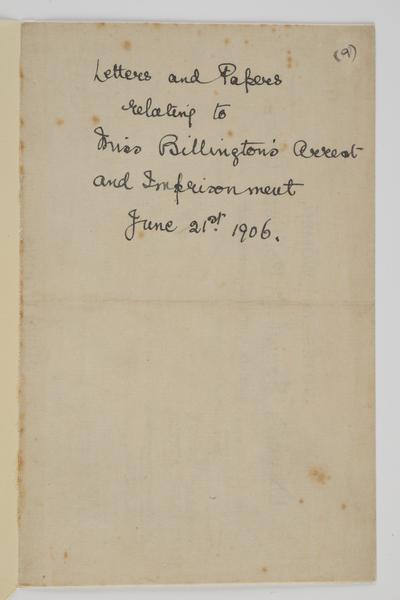 (9)
Letters and Papers
relating to
Miss Billington's Arrest
and Imprisonment
June 21st. 1906.